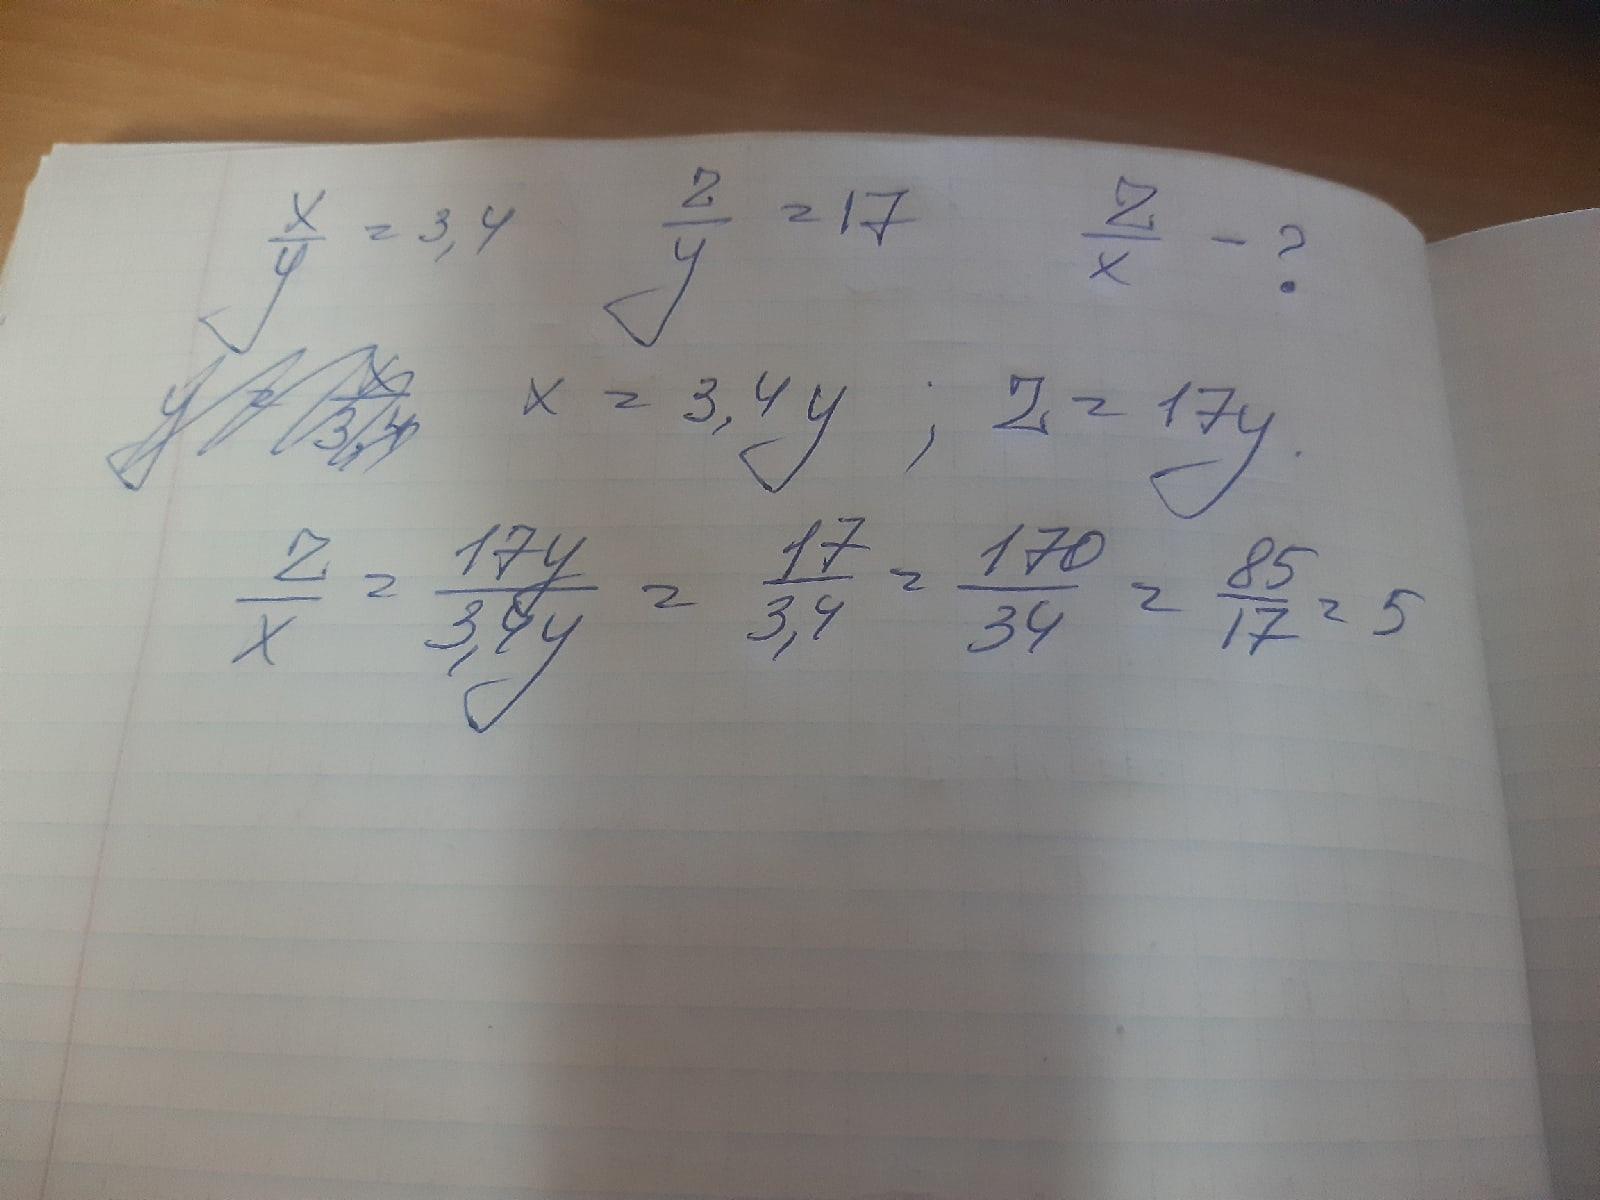 x/y = 3,4 z/y = 17 z/x - ?
y = x/3,4 x = 3,4y ; z = 17y.
z/x = 17y/3,4y = 17/3,4 = 170/34 = 85/17 = 5